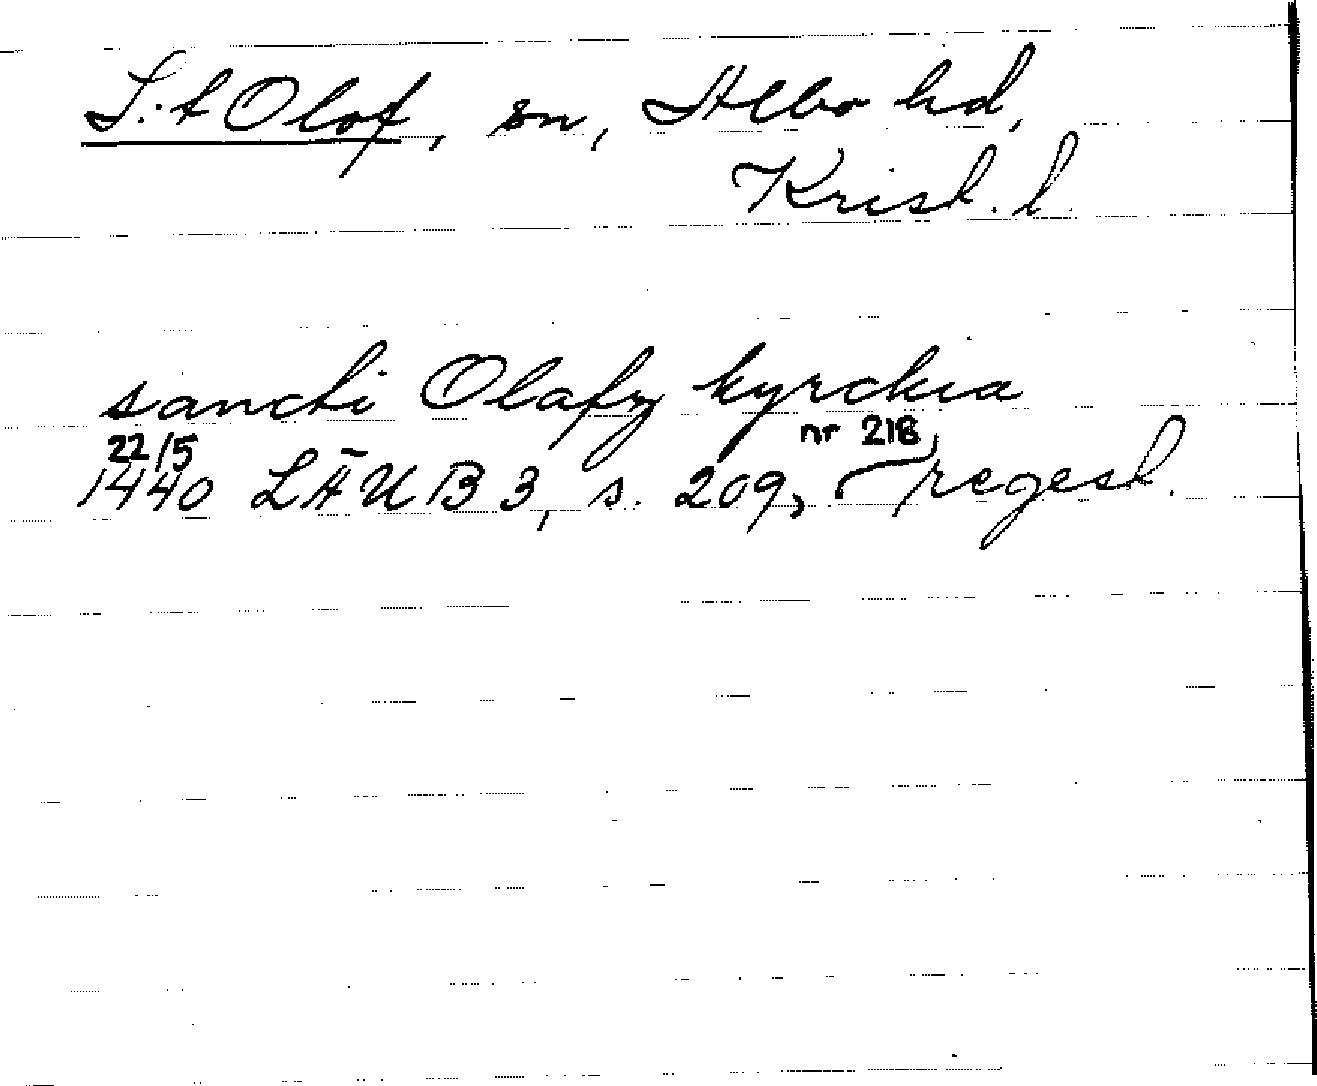 S:t Olof, sn, Albo hd,
Krist. l.
sancti Olafz kyrckia
22/5 nr 218,
1440 LÄUB 3, s. 209, regest.